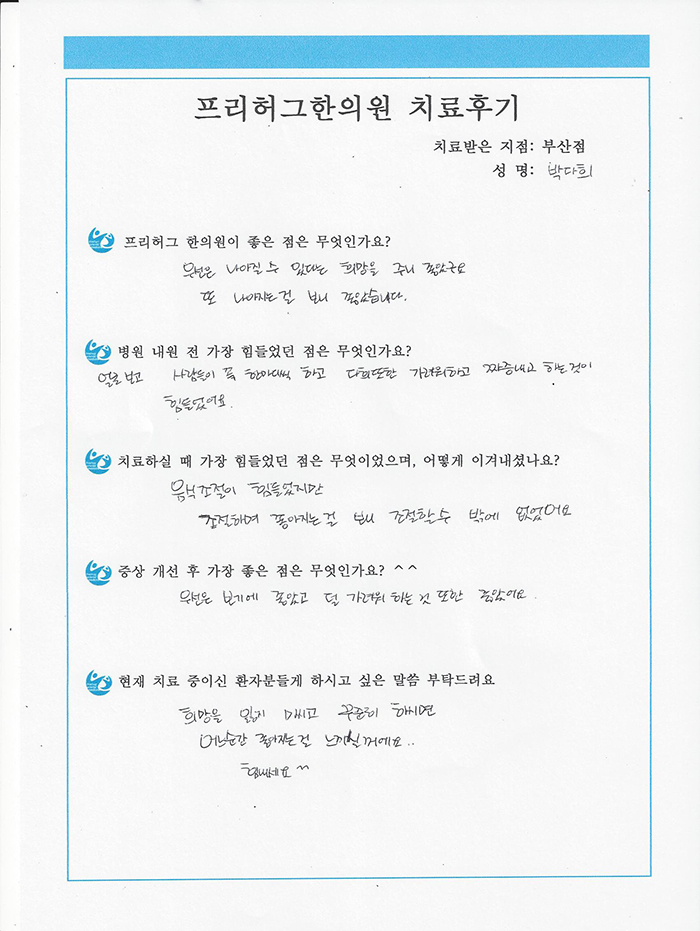 프리허그한의원 치료후기
치료받은 지점: 부산점
성 명: 박다희
프리허그 한의원이 좋은 점은 무엇인가요?
우선은 나아질 수 있다는 희망을 주니 좋았구요
또 나아지는걸 보니 좋았습니다.
병원 내원 전 가장 힘들었던 점은 무엇인가요?
얼굴보고 사람들이 꼭 한마디씩 하고 다희또한 가려워하고 짜증내고 하는것이
힘들었어요.
치료하실 때 가장 힘들었던 점은 무엇이었으며, 어떻게 이겨내셨나요?
음식조절이 힘들었지만
조절하며 좋아지는걸 보니 조절할수 밖에 없었어요
증상 개선 후 가장 좋은 점은 무엇인가요? ^^
우선은 보기에 좋았고 덜 가려워 하는 것 또한 좋았어요.
현재 치료 중이신 환자분들게 하시고 싶은 말씀 부탁드려요
희망을 잃지 마시고 꾸준히 하시면
어느순간 좋아지는걸 느끼실꺼에요..
힘내세요 ^^